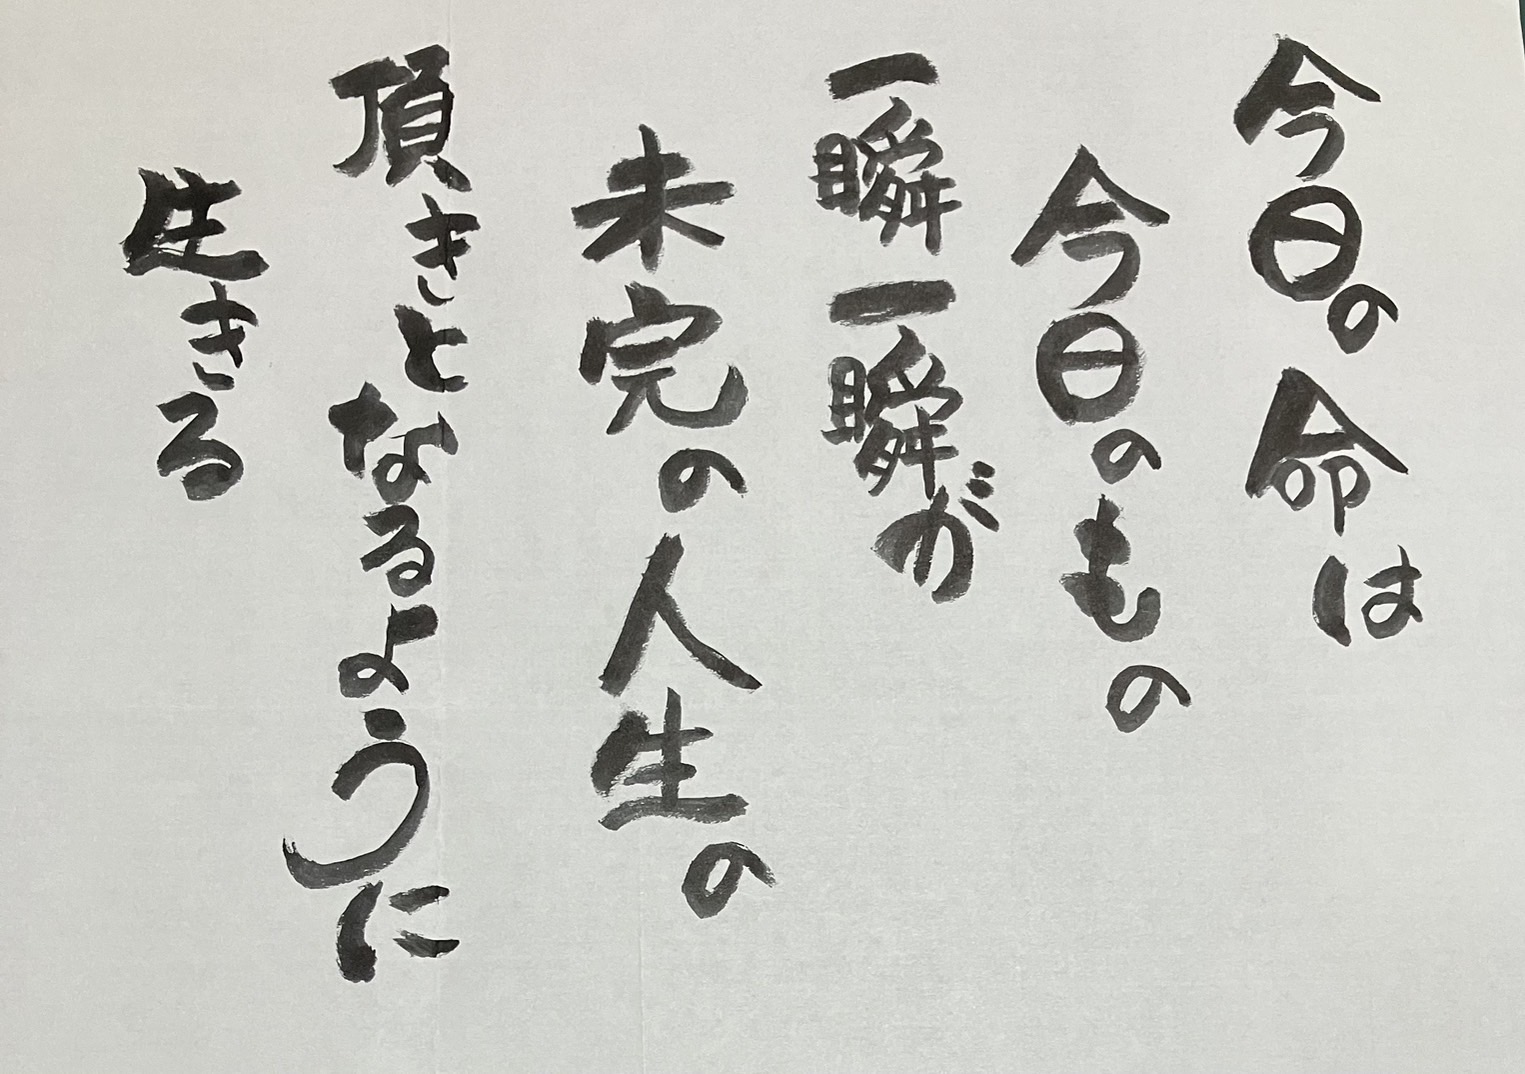 今日の命は
今日のもの
一瞬一瞬が
未完の人生の
頂きとなるように
生きる